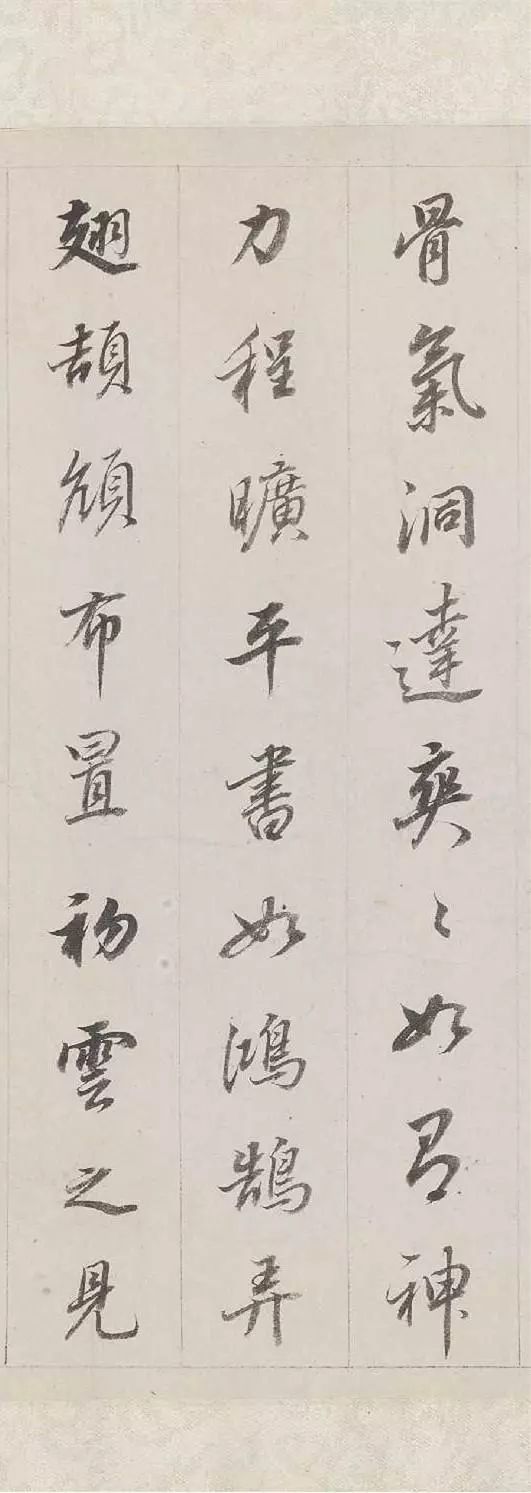 骨氣洞達爽〻如有神
力程曠平書如鴻鵠弄
翅頡頏布置初雲之見